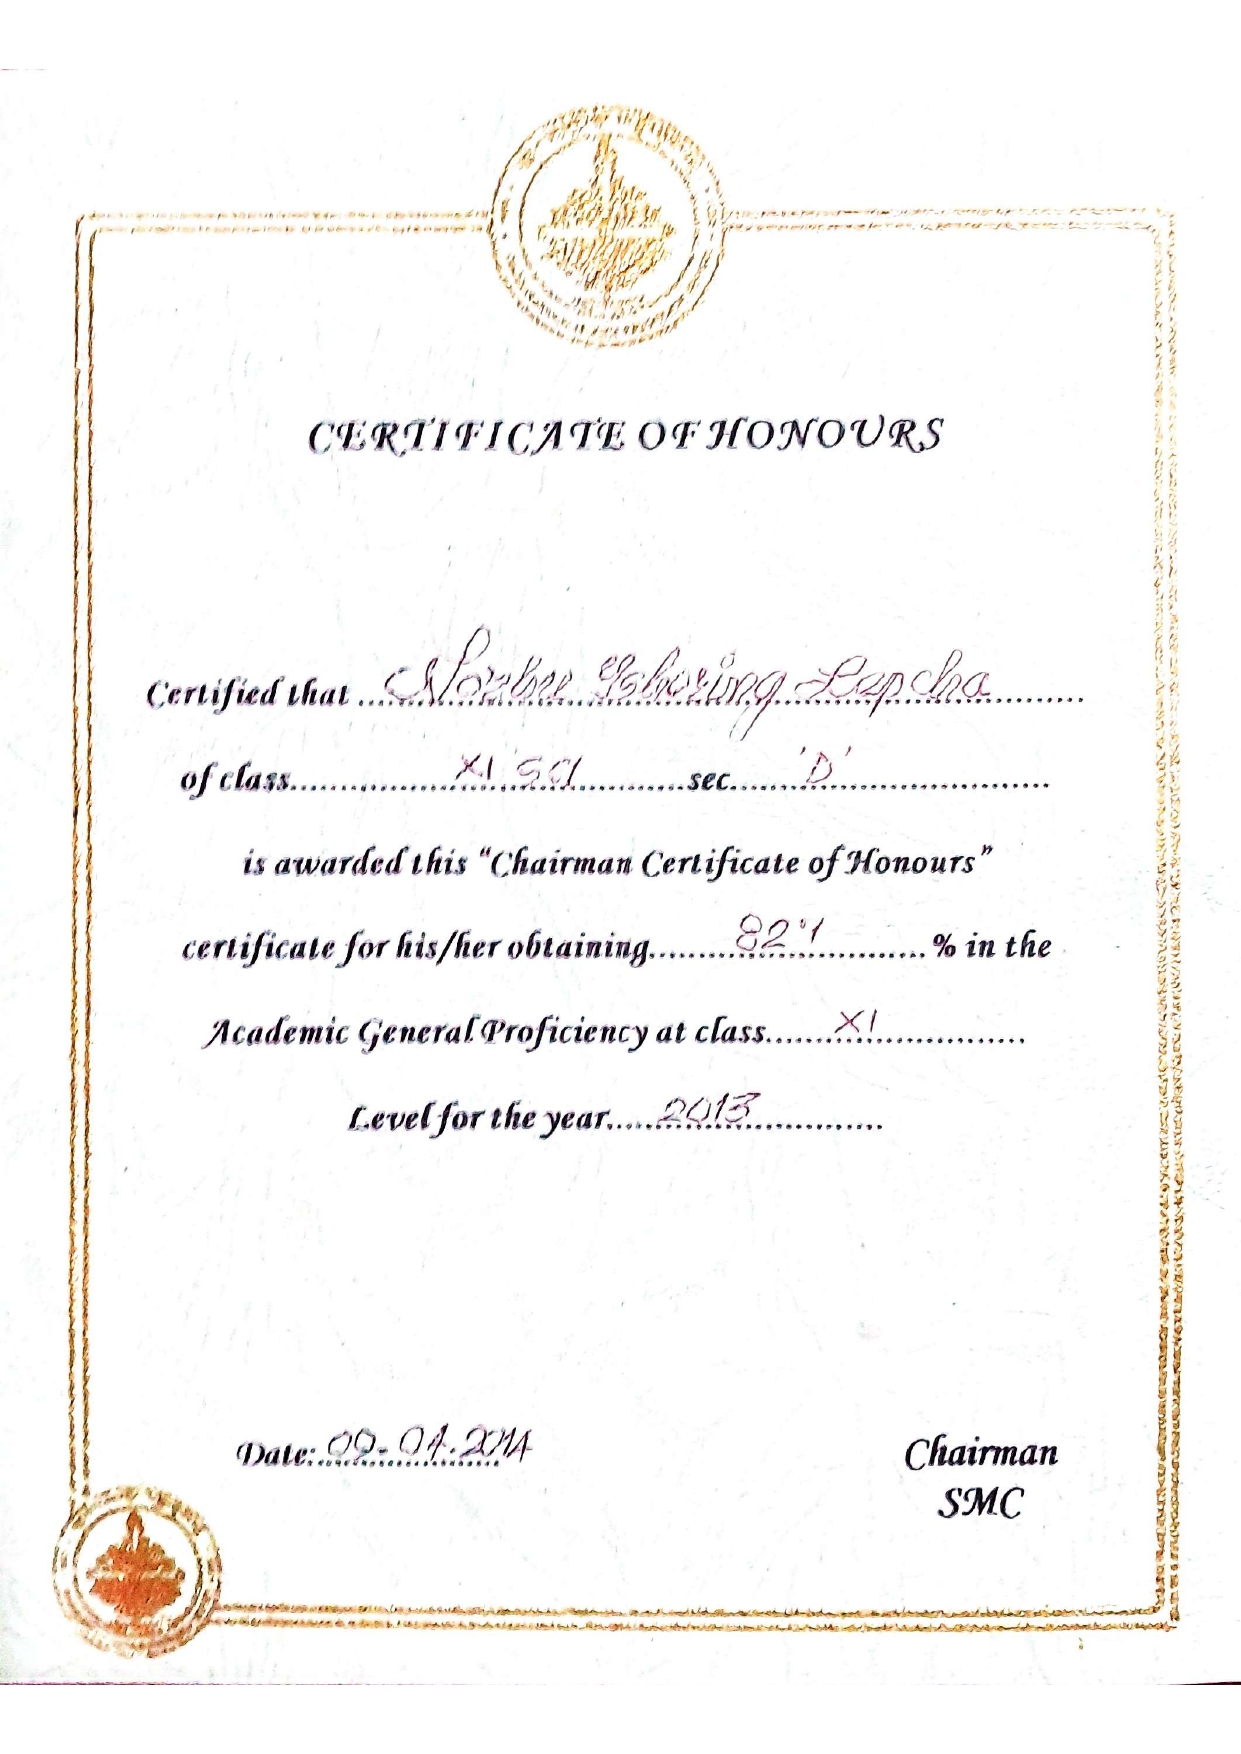 CERTIFICATE OF HONOURS
Certified that ........Tshering Lepcha........
of class........XI Sci........sec......'D'........
is awarded this "Chairman Certificate of Honours"
certificate for his/her obtaining........82%........% in the
Academic General Proficiency at class......XI........
Level for the year.....2013........
Date: 09-04-2014
Chairman
SMC